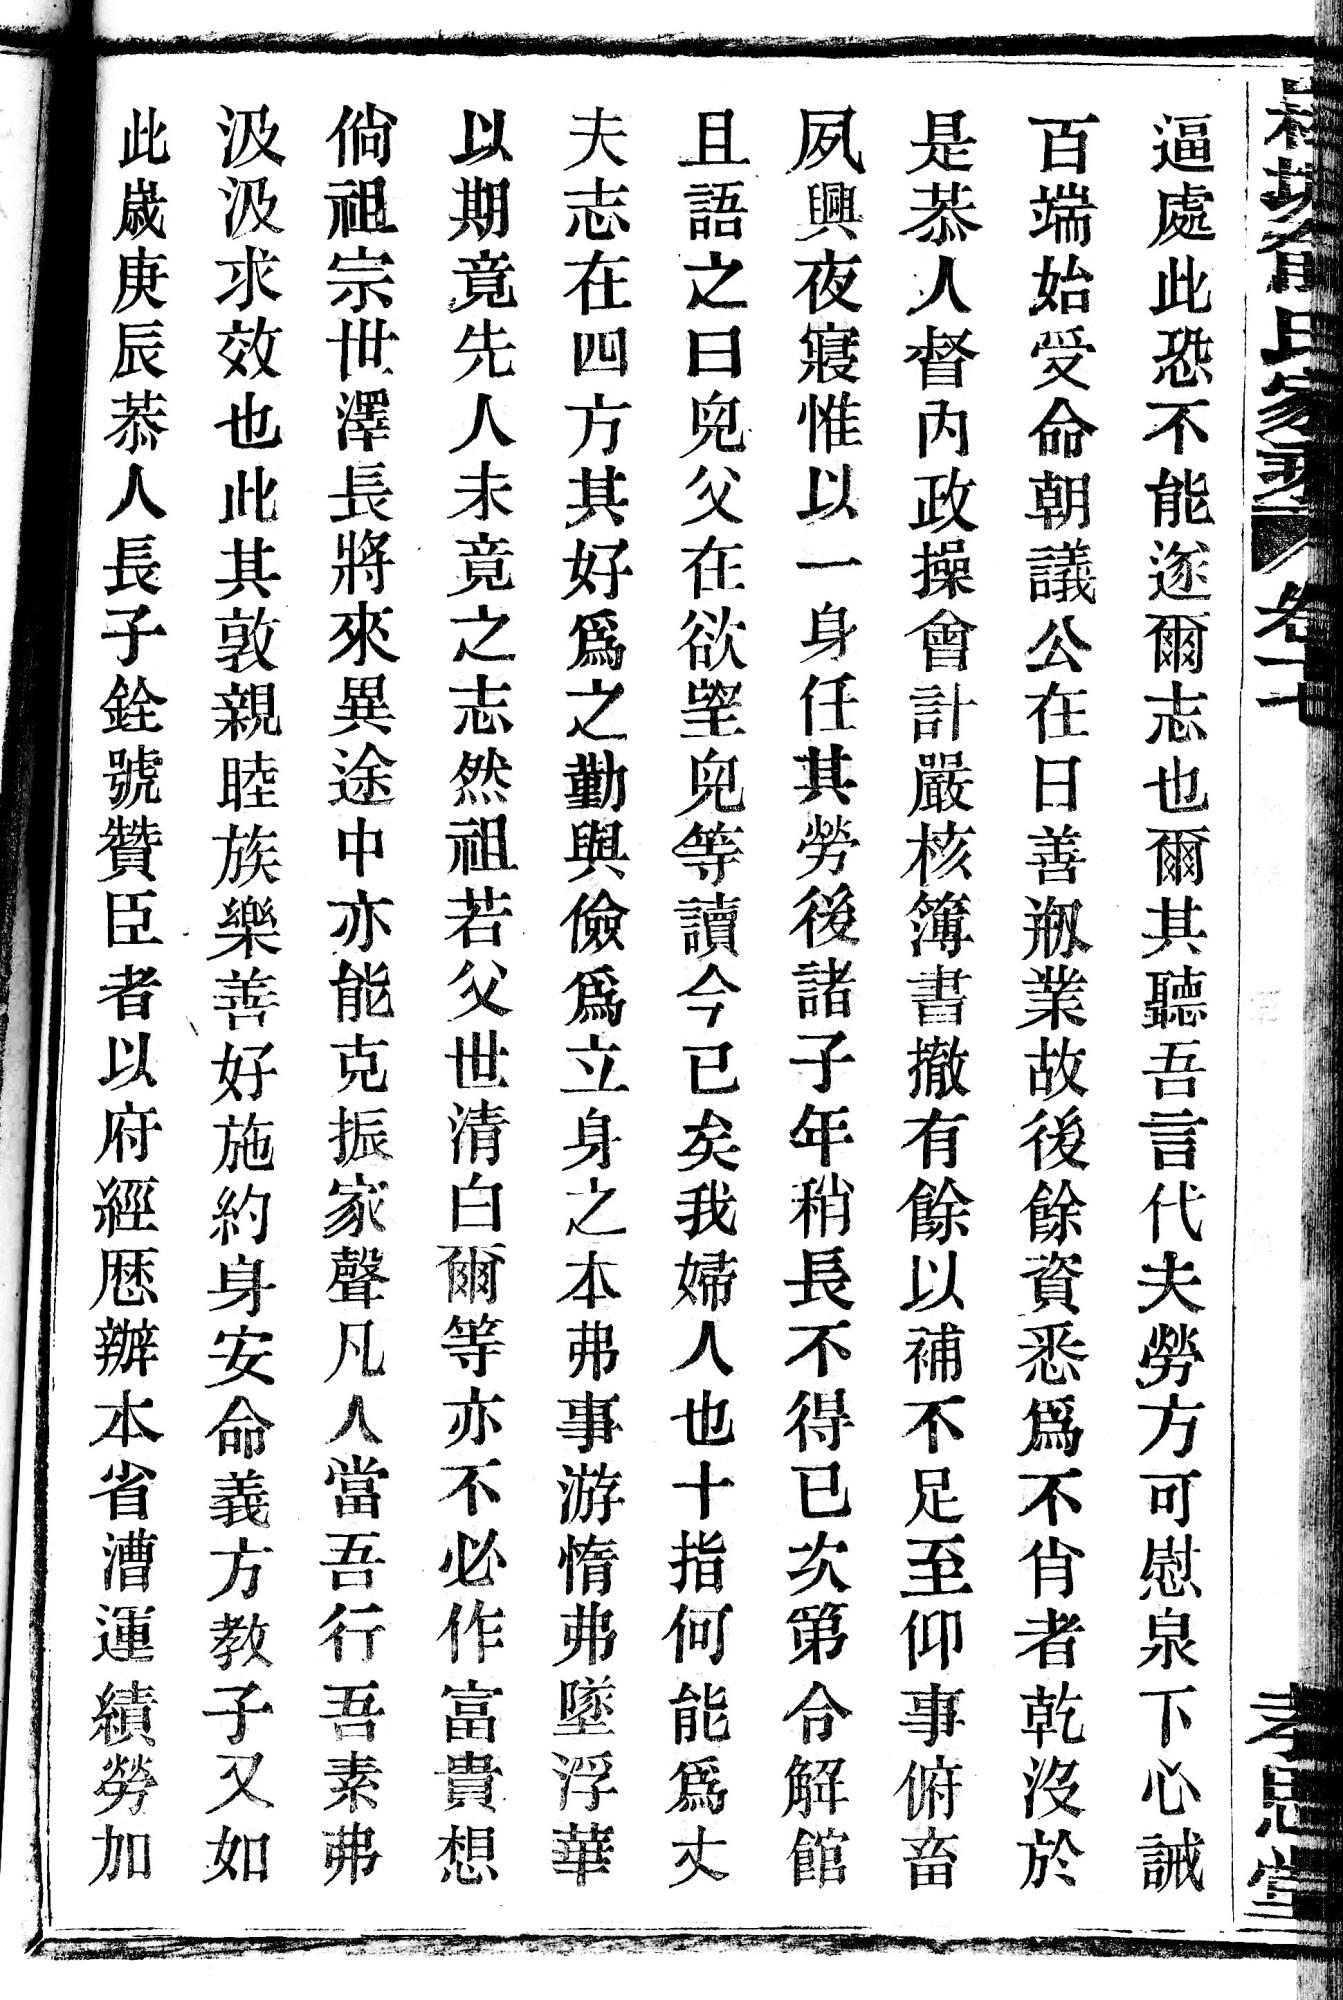 氏家
卷十
孝思堂
逼處此恐不能遂爾志也爾其聽吾言代夫勞方可慰泉下心誡
百端始受命朝議公在日善剏業故後餘資悉爲不肖者乾沒於
是恭人督內政操會計嚴核簿書撤有餘以補不足至仰事俯畜
夙興夜寢惟以一身任其勞後諸子年稍長不得已次第令解館
且語之曰兒父在欲望兒等讀今已矣我婦人也十指何能爲丈
夫志在四方其好爲之勤與儉爲立身之本弗事游惰弗墜浮華
以期竟先人未竟之志然祖若父世清白爾等亦不必作富貴想
倘祖宗世澤長將來異途中亦能克振家聲凡人當吾行吾素弗
汲汲求效也此其敦親睦族樂善好施約身安命義方教子又如
此歲庚辰恭人長子銓號贊臣者以府經厯辦本省漕運績勞加